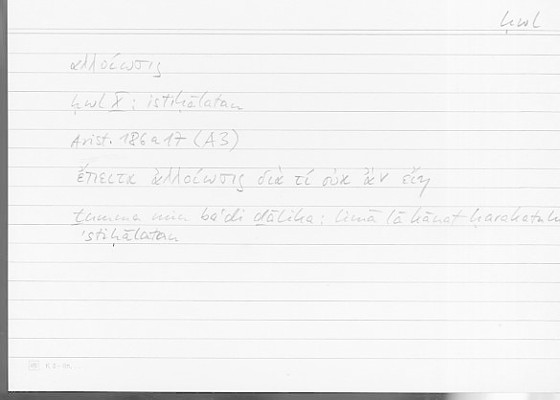 ḥwl
ἀλλοίωσις
ḥwl X : istiḥālatan
Arist. 186a17 (A3)
ἔπειτα ἀλλοίωσις διὰ τί οὐκ ἂν εἴη
ṯumma min baʿdi ḏālika : limā lā kānat ḥarakatuhu
'stiḥālatan